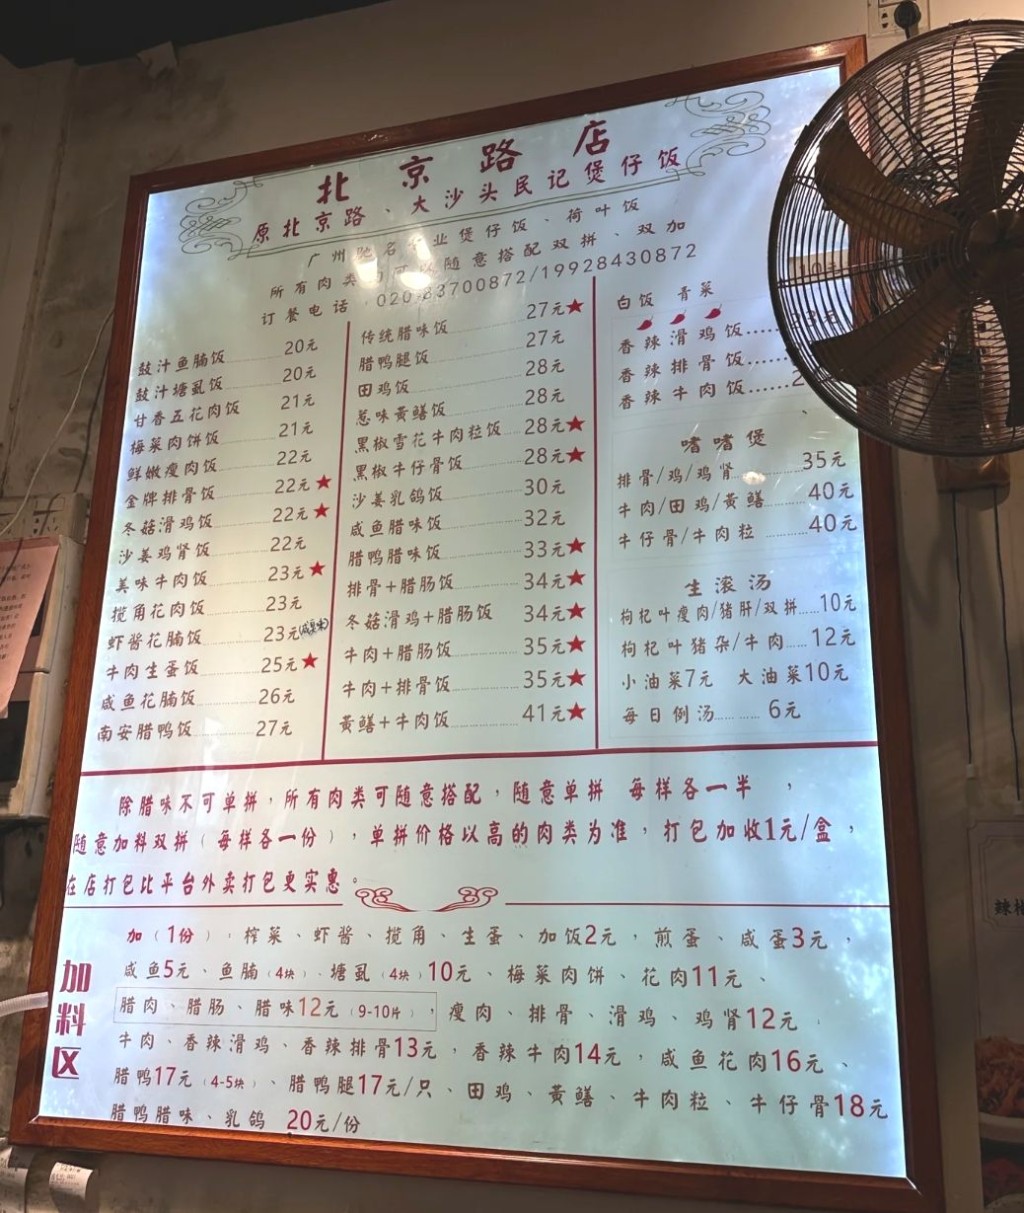 北京路店
原北京路、大沙头民记煲仔饭
广州驰名专业煲仔饭、荷叶饭
所有肉类均可以随意搭配双拼、双加
订餐电话:020-83700872/19928430872
鼓汁鱼腩饭 20元
鼓汁塘虱饭 20元
甘香五花肉饭 21元
梅菜肉饼饭 21元
鲜嫩瘦肉饭 22元
金牌排骨饭 22元★
冬菇滑鸡饭 22元★
沙姜鸡肾饭 22元
美味牛肉饭 23元★
揽角花肉饭 23元
虾酱花腩饭 23元
牛肉生蛋饭 25元★
咸鱼花腩饭 26元
南安腊鸭饭 27元
传统腊味饭 27元★
腊鸭腿饭 27元
田鸡饭 28元
惹味黃鳝饭 28元
黑椒雪花牛肉粒饭 28元★
黑椒牛仔骨饭 28元★
沙姜乳鸽饭 30元
咸鱼腊味饭 32元
腊鸭腊味饭 33元★
排骨+腊肠饭 34元★
冬菇滑鸡+腊肠饭 34元★
牛肉+腊肠饭 35元★
牛肉+排骨饭 35元★
黃鳝+牛肉饭 41元★
白饭 青菜
香辣滑鸡饭
香辣排骨饭
香辣牛肉饭
嗜嗜煲
排骨/鸡/鸡肾 35元
牛肉/田鸡/黃鳝 40元
牛仔骨/牛肉粒 40元
生滚汤
枸杞叶瘦肉/猪肝/双拼 10元
枸杞叶猪杂/牛肉 12元
小油菜7元 大油菜10元
每日例汤 6元
除腊味不可单拼，所有肉类可随意搭配，随意单拼 每样各一半，
随意加料双拼（每样各一份），单拼价格以高的肉类为准，打包加收1元/盒，
在店打包比平台外卖打包更实惠。
加料区
加（1份），榨菜、虾酱、揽角、生蛋、加饭2元，煎蛋、咸蛋3元，
咸鱼5元、鱼腩（4块）、塘虱（4块）10元、梅菜肉饼、花肉11元、
腊肉、腊肠、腊味12元（9-10片），瘦肉、排骨、滑鸡、鸡肾12元
牛肉、香辣滑鸡、香辣排骨13元，香辣牛肉14元，咸鱼花肉16元、
腊鸭17元（4-5块）、腊鸭腿17元/只、田鸡、黃鳝、牛肉粒、牛仔骨18元
腊鸭腊味、乳鸽 20元/份